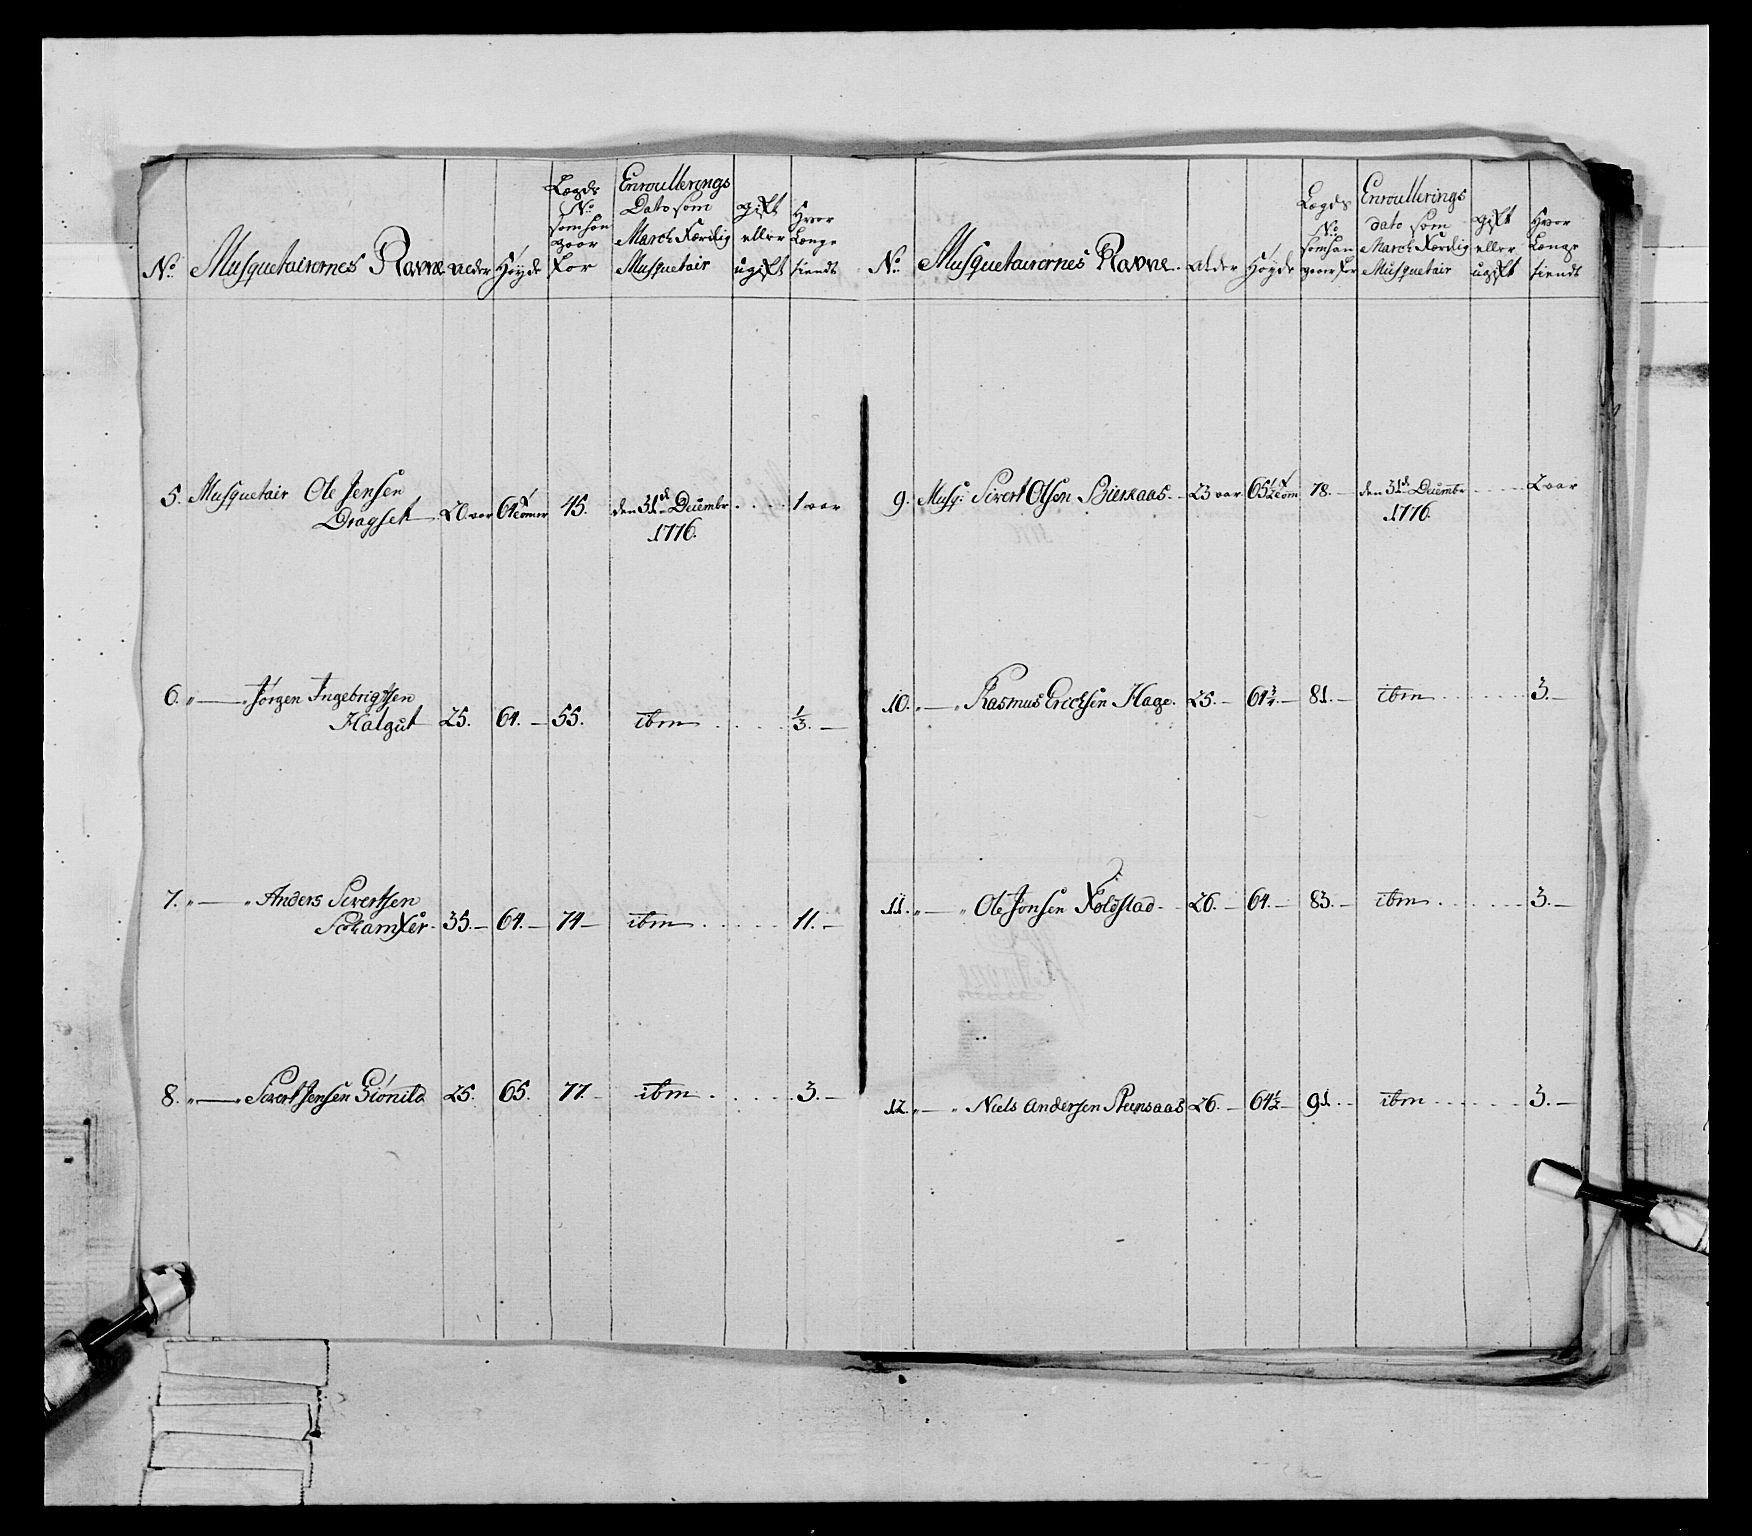 No. Musquetairernes Navne. alder Høyde Lægds No. som han gaar for Enroullerings Dato som March Færdig Musquetair gift eller ugift Hvor Længe tiendt
5. Musquetair Ole Jensen
Dragset 20. aar 64 tomer 45. den 31d Decembr 1 aar
1776.
6. " — " Jørgen Ingebrigtsen
Halgut 25. 64. — 55. ibm 1/3. —
7. " — " Anders Sivertsen
35. — 64. — 74 — ibm 11. —
8. " — " Sivert Jensen 25. 65. 77. ibm 3. —
No. Musquetairernes Navne. alder Høyde Lægds No. som han gaar for Enroullerings dato som March Færdig Musquetair gift eller ugift Hvor Længe tiendt
9. Musq: Sivert Olsen 23 aar 65 1/2 tom 78. — den 31d Decembr 2 aar
1776.
10. " — " Rasmus Erichsen Hage. 25. — 61 3/4 — 81. — ibm 3. —
11. " — " Ole Jonsen 26. — 64. — 83. — ibm 3. —
12. " — " Niels Andersen Steensaas 26. — 64 1/2 — 91. — ibm 3. —